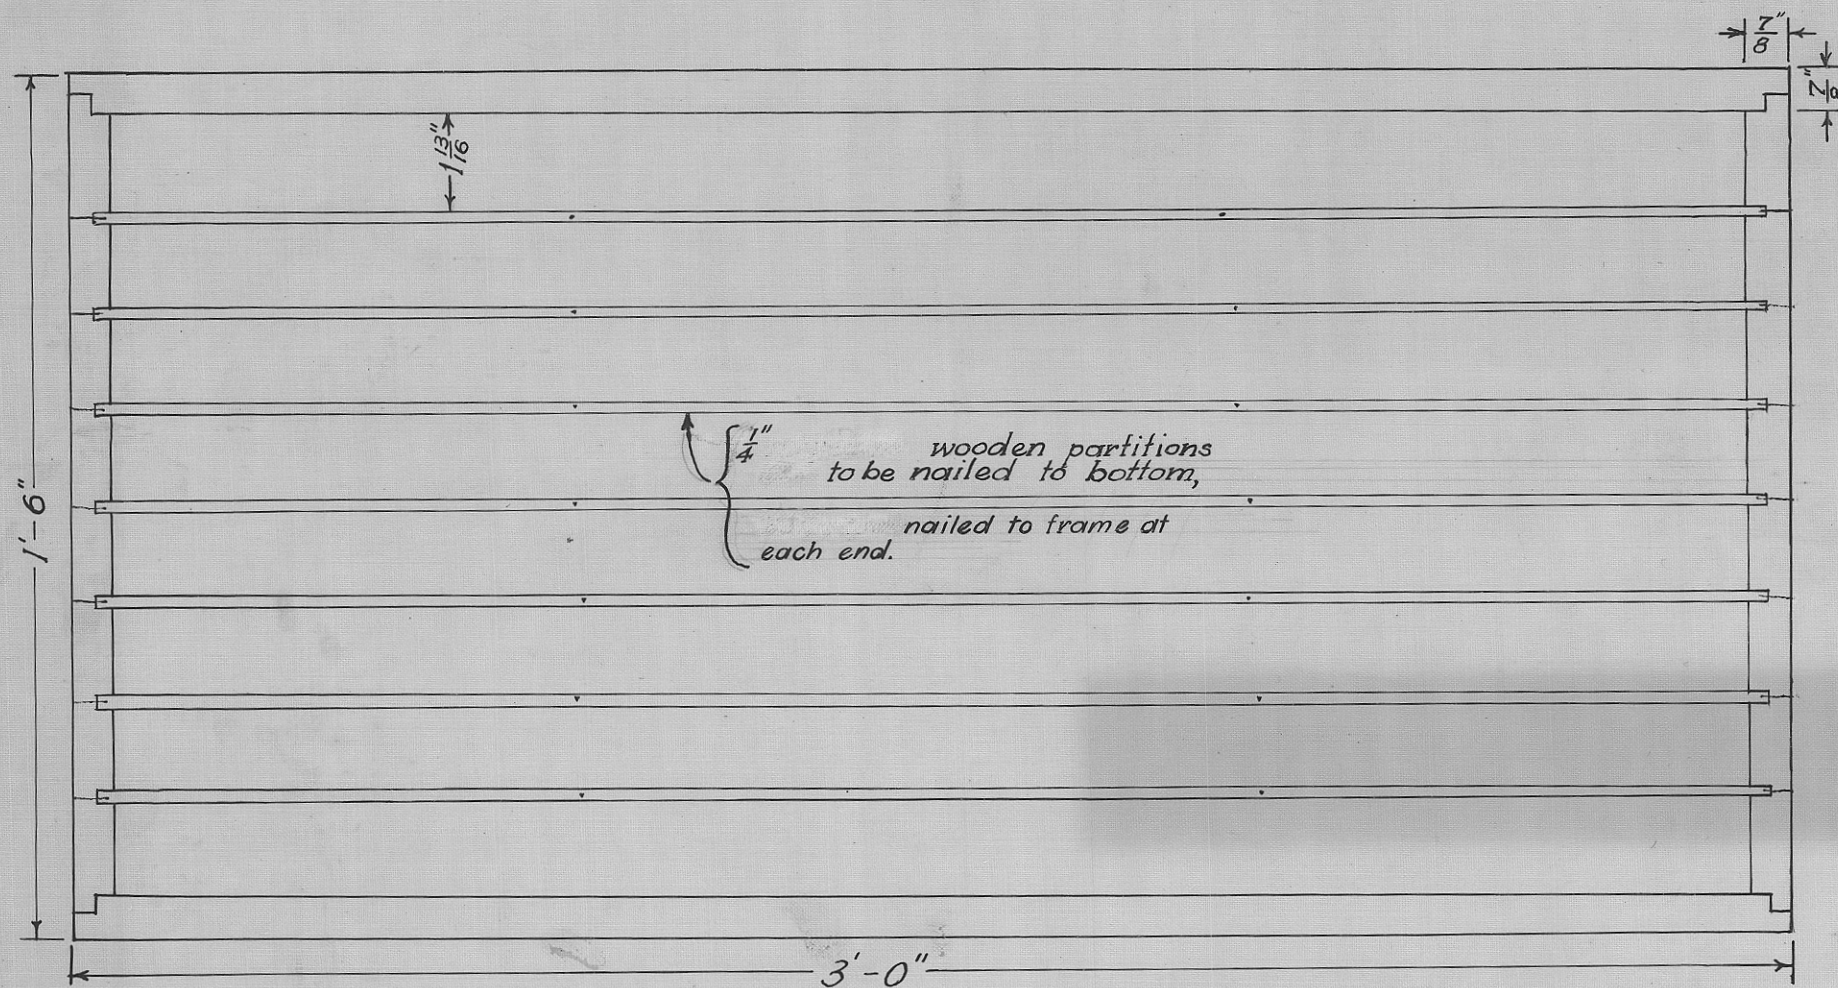 7/8"
7/8"
1 13/16"
1/4" wooden partitions
to be nailed to bottom,
nailed to frame at
each end.
1'-6"
3'-0"